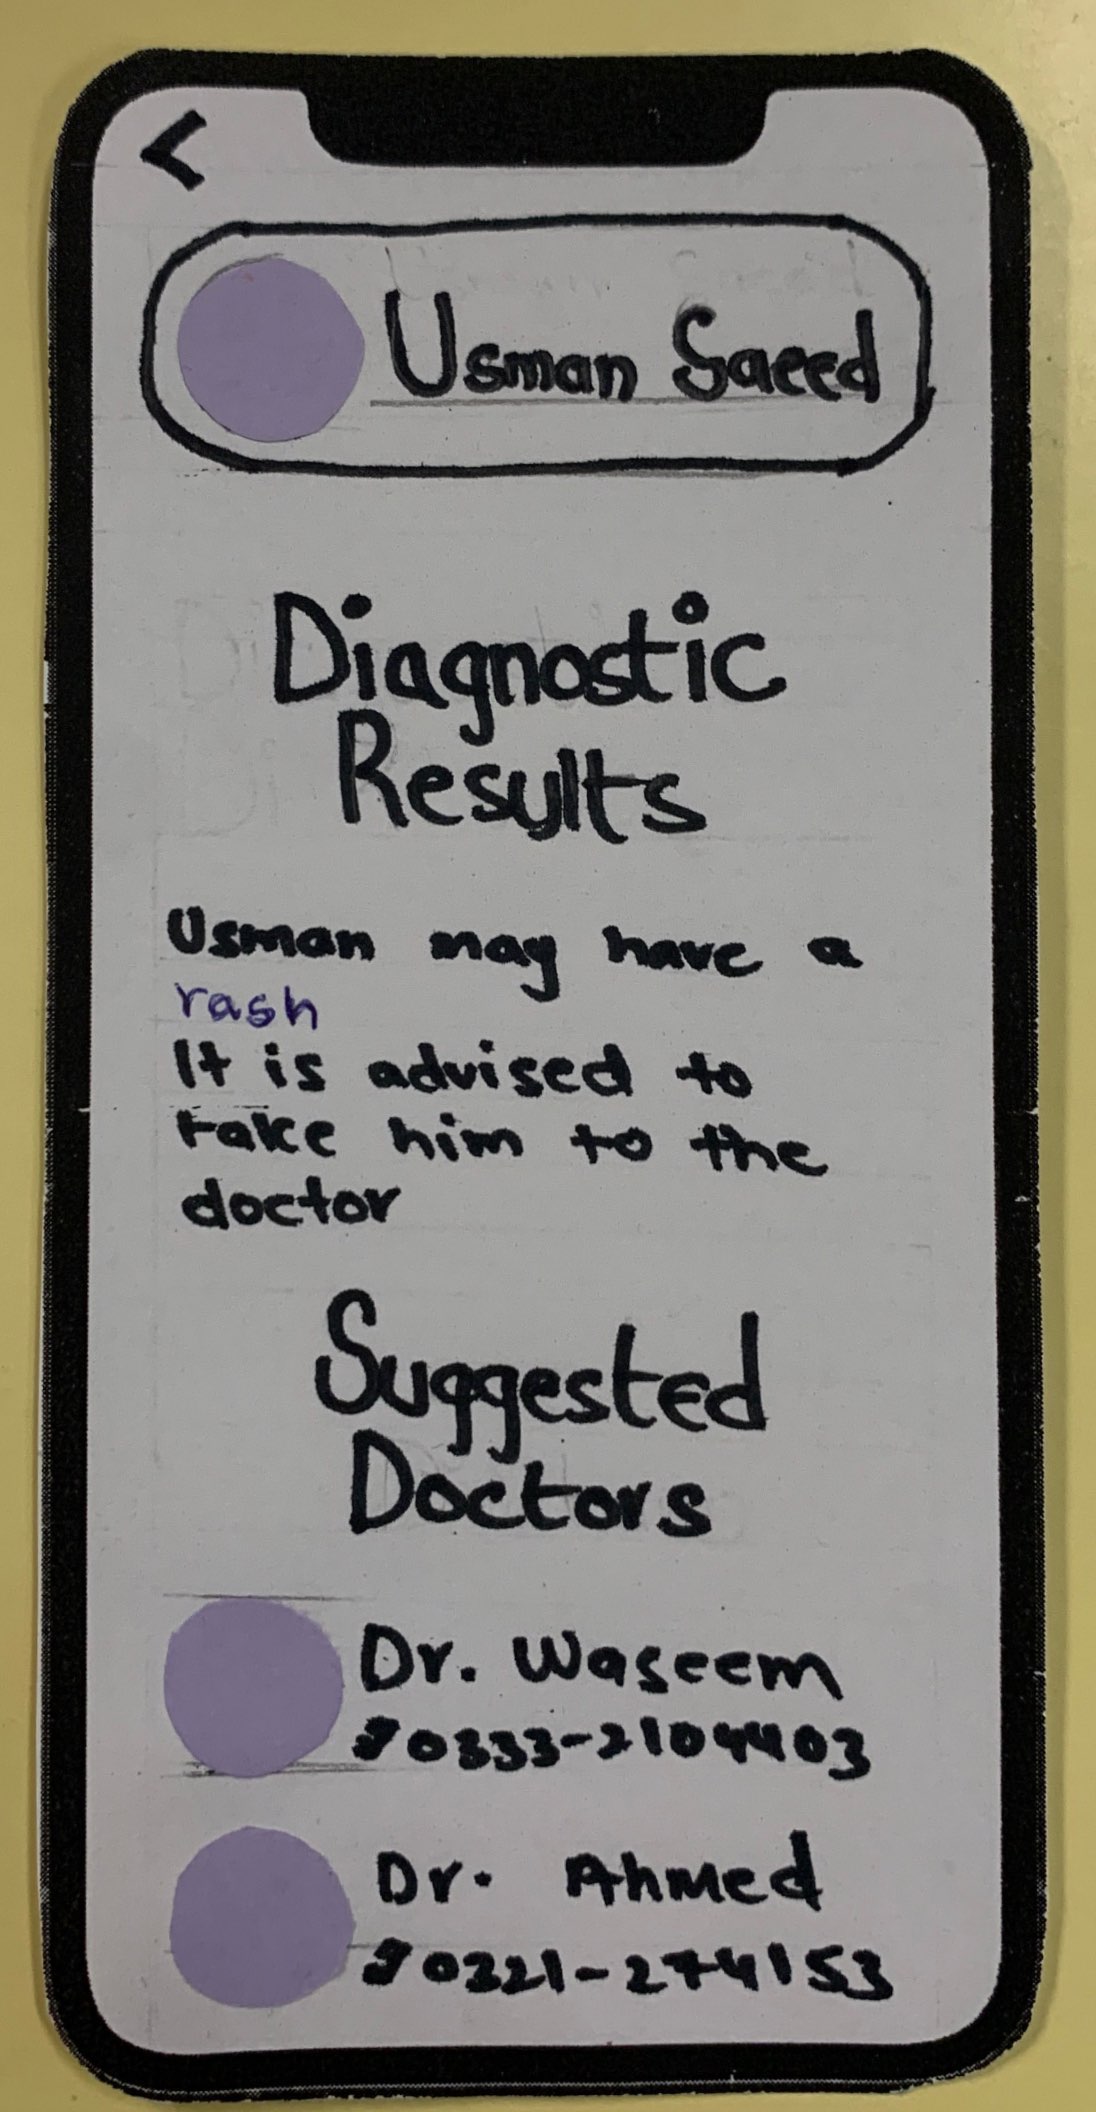 <
Usman Saeed
Diagnostic
Results
Usman may have a
rash
It is advised to
take him to the
doctor
Suggested
Doctors
Dr. Waseem
0333-2104403
Dr. Ahmed
0321-274153